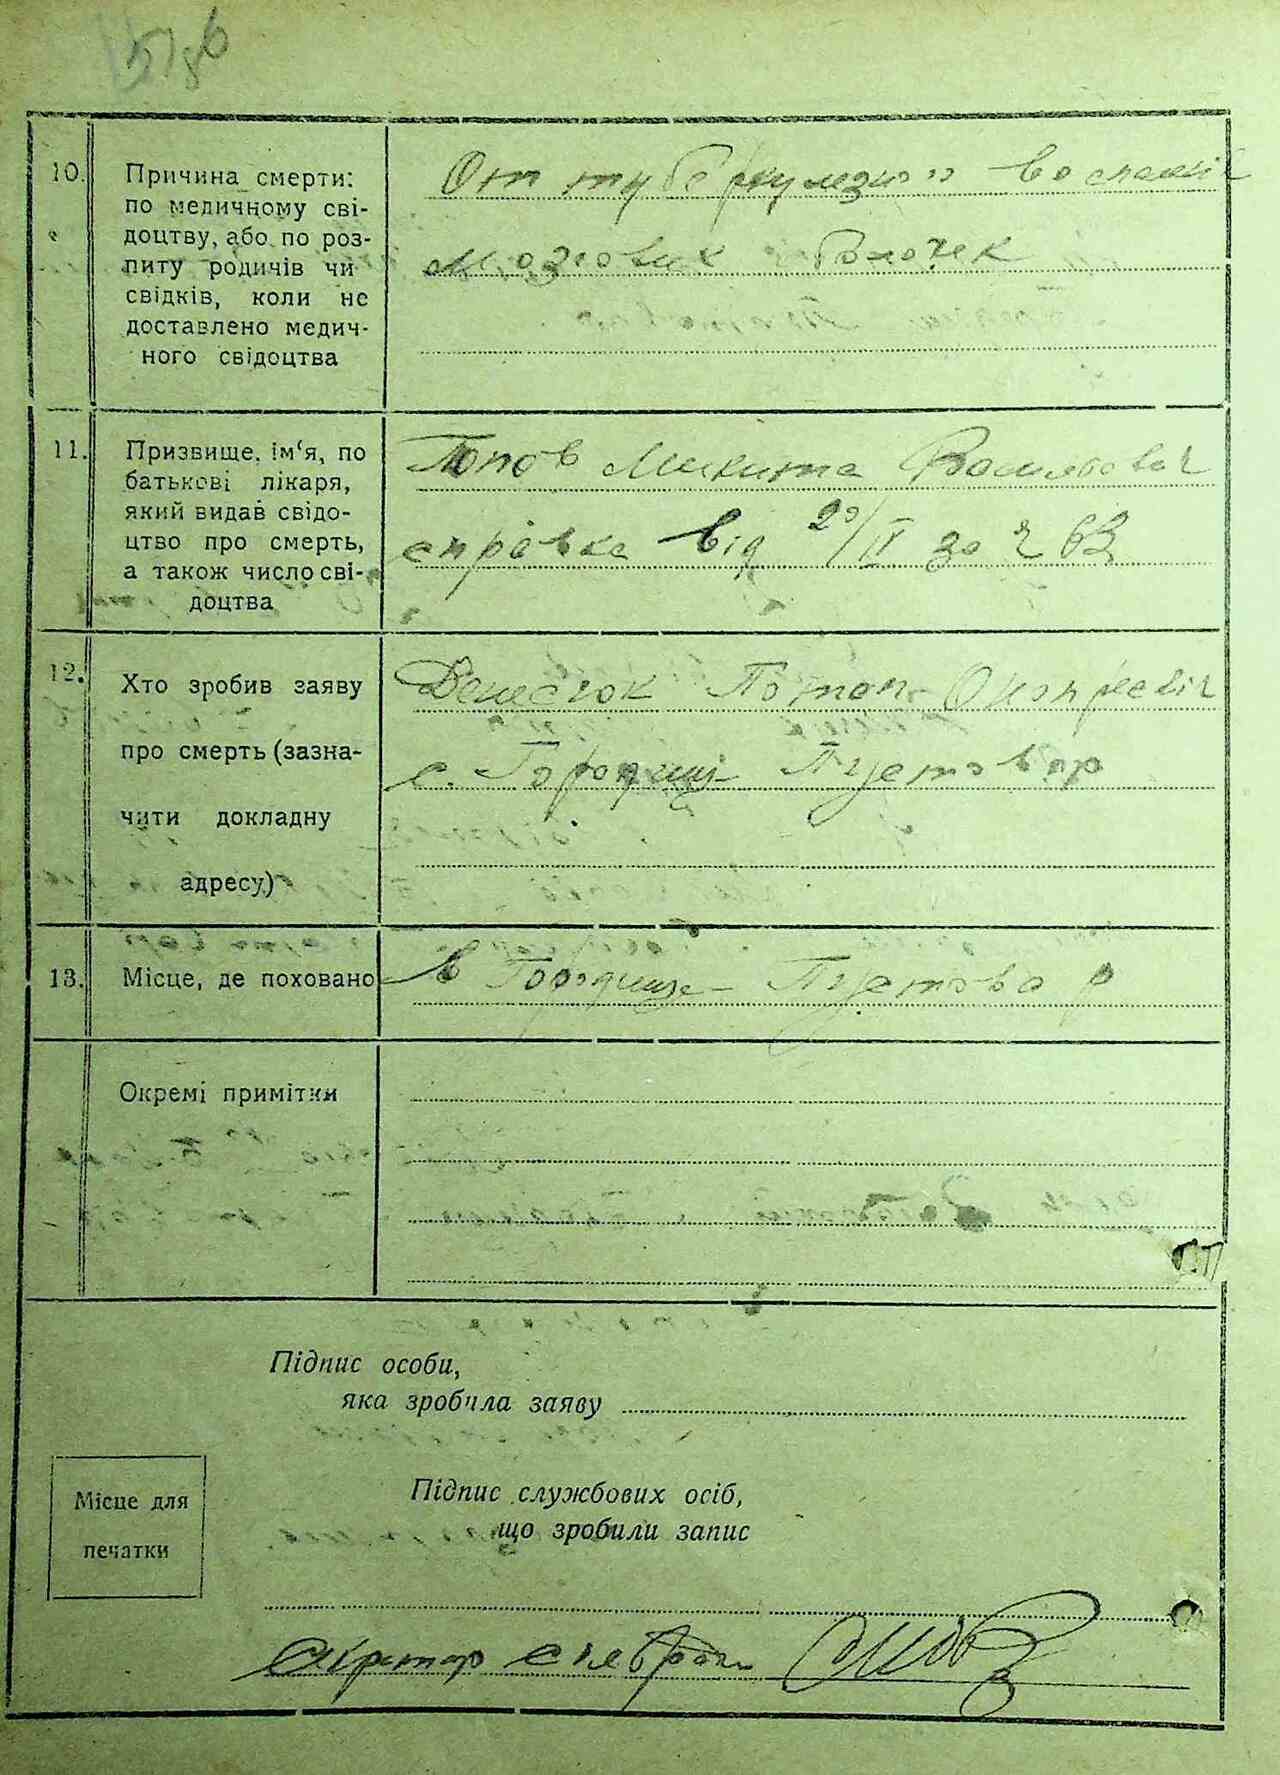 10. Причина смерти:
по медичному сві-
доцтву, або по роз-
питу родичів чи
свідків, коли не
доставлено медич-
ного свідоцтва
От
мозгових болочек
11. Призвище, ім‘я, по
батькові лікаря,
який видав свідо-
цтво про смерть,
а також число сві-
доцтва
Попов Микита Васильович
справка від 20/IV за № 63
12. Хто зробив заяву
про смерть (зазна-
чити докладну
адресу)
Денесюк Потап
с. Городищ
13. Місце, де поховано
в Городище
Окремі примітки
Підпис особи,
яка зробила заяву
Місце для
печатки
Підпис службових осіб,
що зробили запис
Секретар